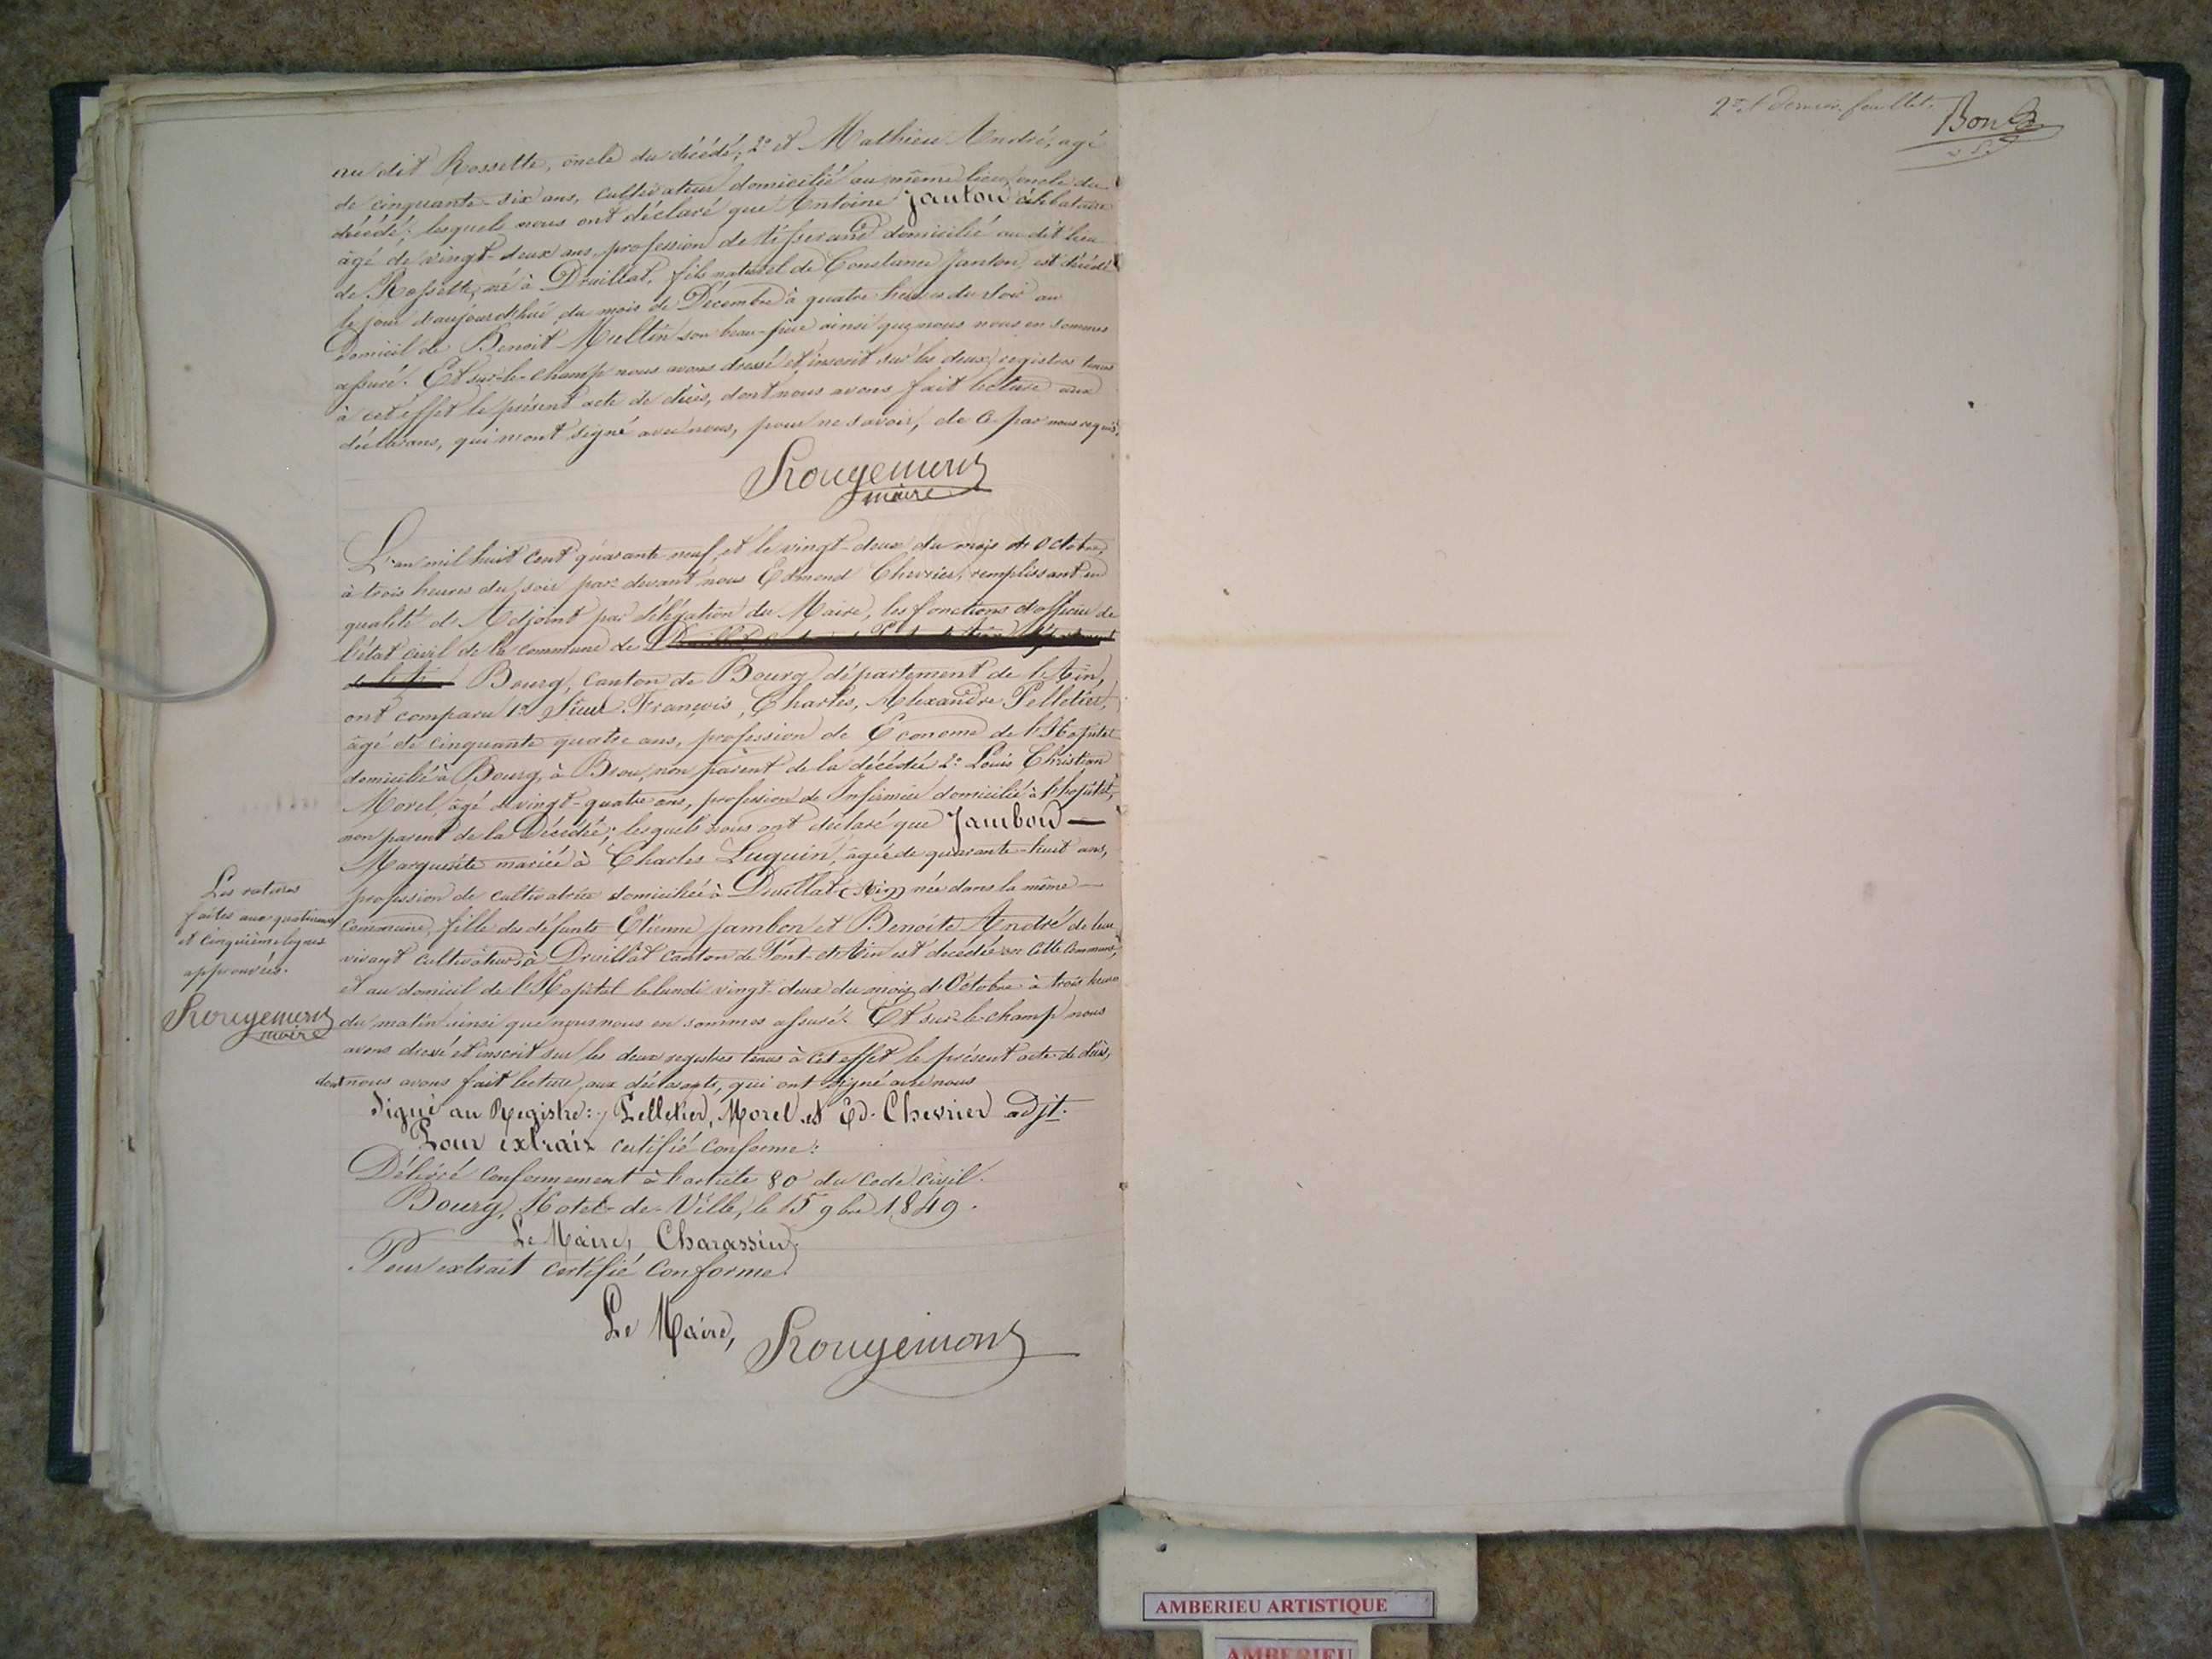 au dit Rossette, oncle du décédé, 2° et Mathieu André, agé
de cinquante-six ans, cultivateur domicilié au même lieu, oncle du
décédé; lesquels nous ont déclaré que Antoine Janton célibataire
âgé de vingt-deux ans, profession de tisserand domicilié au dit lieu
de Rossette, né à Druillat, fils naturel de Constance Janton, est décédé
le jour d'aujourd'hui du mois de Décembre à quatre heures du soir au
Domicil de Benoit Multin son beau-père ainsi que nous nous en sommes
assuré. Et sur-le-champ nous avons dressé et inscrit sur les deux registres tenus
à cet effet le présent acte de décès, dont nous avons fait lecture aux
déclarans, qui n'ont signé avec nous, pour ne savoir, de ce par nous requis.
Rougemont
maire
L'an mil huit cent quarante neuf, et le vingt-deux du mois de Octobre,
à trois heures du soir par devant nous Edmond Chevrier, remplissant en
qualité d'Adjoint par délégation du Maire, les fonctions d'officier de
l'état civil de la commune de
Bourg, canton de Bourg département de l'Ain,
ont comparu 1° Sieur François, Charles, Alexandre Pelletier,
âgé de cinquante quatre ans, profession de Econome de l'Hopital
domicilié à Bourg, à Brou, non parent de la décédée 2° Louis Christian
Morel, âgé de vingt-quatre ans, profession de Infirmier domicilié à l'hopital,
non parent de la Décédée; lesquels nous ont déclaré que Jambon
Marguerite mariée à Charles Luguin, âgée de quarante-huit ans,
profession de cultivatrice domiciliée à Druillat (Ain) née dans la même
commune, fille des défunts Etienne Jambon et Benoite André de leur
vivant cultivateurs à Druillat canton de Pont-d'Ain est décédée en cette commune,
et au domicil de l'Hopital le lundi vingt-deux du mois d'Octobre à trois heures
du matin ainsi que nous nous en sommes assuré. Et sur-le-champ nous
avons dressé et inscrit sur les deux registres tenus à cet effet le présent acte de décès,
dont nous avons fait lecture aux déclarants, qui ont signé avec nous
Signé au Registre: Pelletier, Morel et Ed. Chevrier adjt.
Pour extrait certifié conforme:
Délivré conformement à l'article 80 du code civil.
Bourg, Hotel-de-Ville, le 15 9bre 1849.
Le Maire, Charassin
Pour extrait certifié conforme
Le Maire, Rougemont
Les ratures
faites aux quatrième
et cinquième lignes
approuvées.
Rougemont
maire
2e et dernier feuillet.
AMBERIEU ARTISTIQUE
AMBERIEU